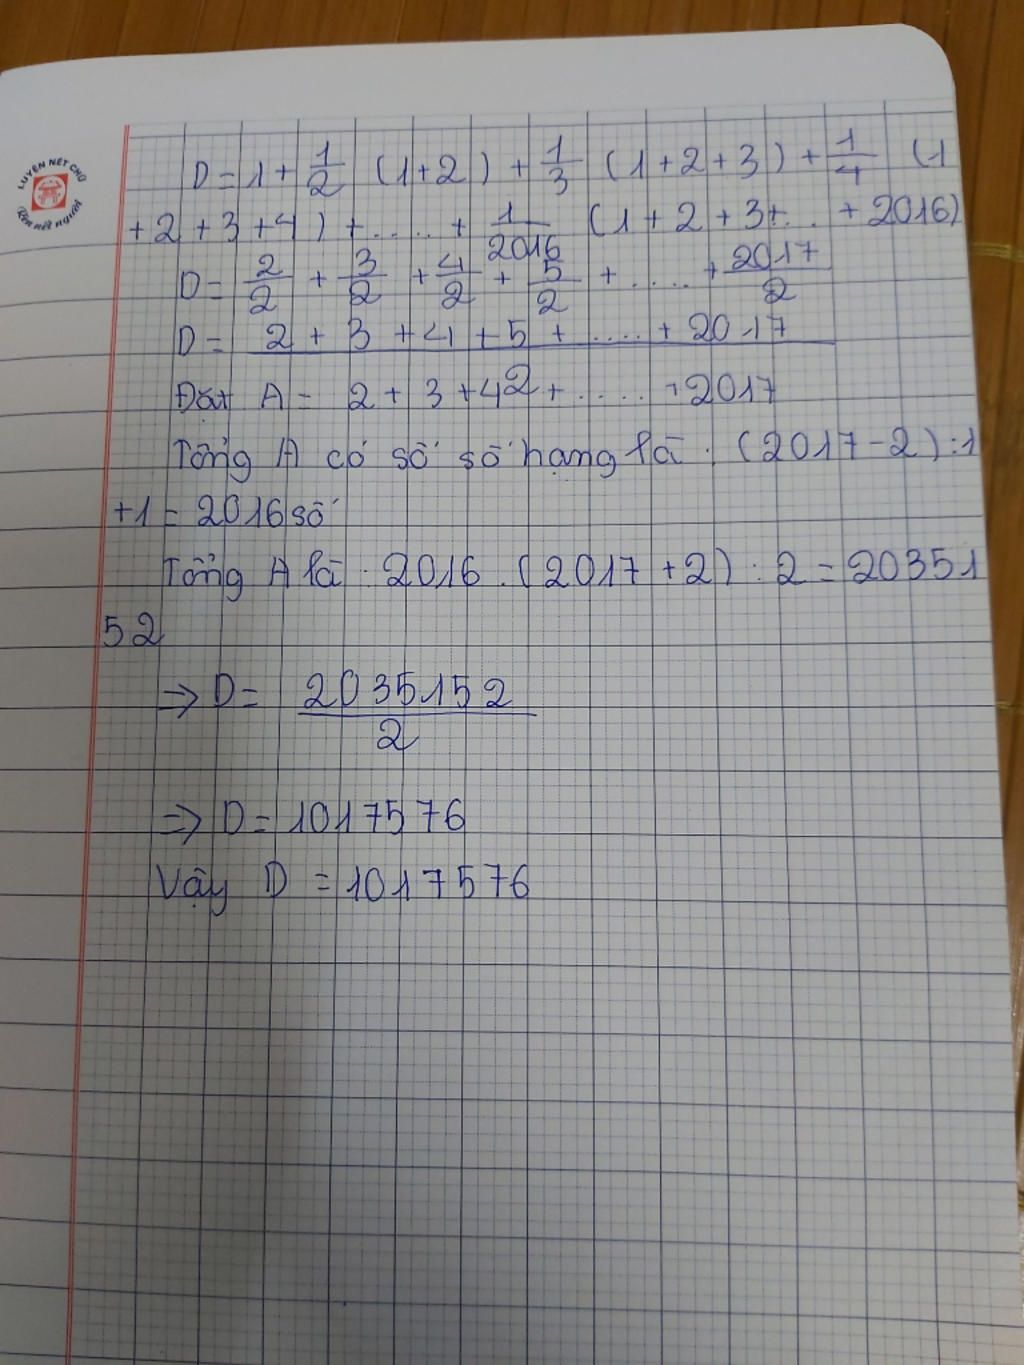 LUYỆN NÉT CHỮ
Rèn nết người
D = 1 + 1/2 (1+2) + 1/3 (1+2+3) + 1/4 (1
+2+3+4) + ..... + 1/2016 (1+2+3+... +2016)
D = 2/2 + 3/2 + 4/2 + 5/2 + ..... + 2017/2
D = 2 + 3 + 4 + 5 + ..... + 2017
2
Đặt A = 2 + 3 + 4 + ..... + 2017
Tổng A có số số hạng là : (2017-2):1
+1 = 2016 số
Tổng A là : 2016 . (2017 +2) : 2 = 20351
52
=> D = 2035152/2
=> D = 1017576
Vậy D = 1017576